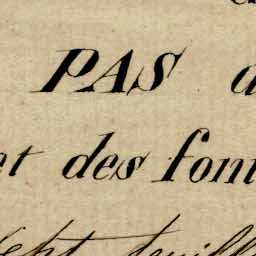 PAS d
et des font
sept feuill